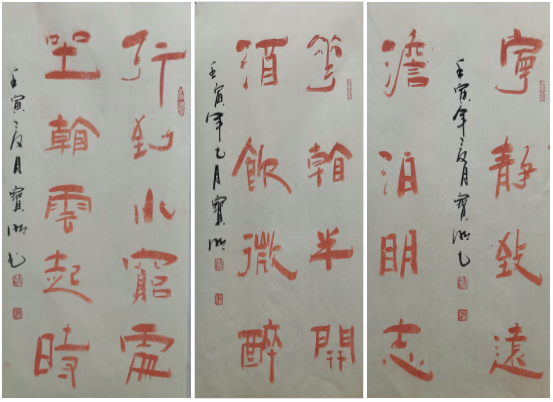 寧静致遠
澹泊明志
壬寅年夏月寶
華看半開
酒飲微醉
壬寅年七月寶
行到水窮處
坐看雲起時
壬寅夏月寶